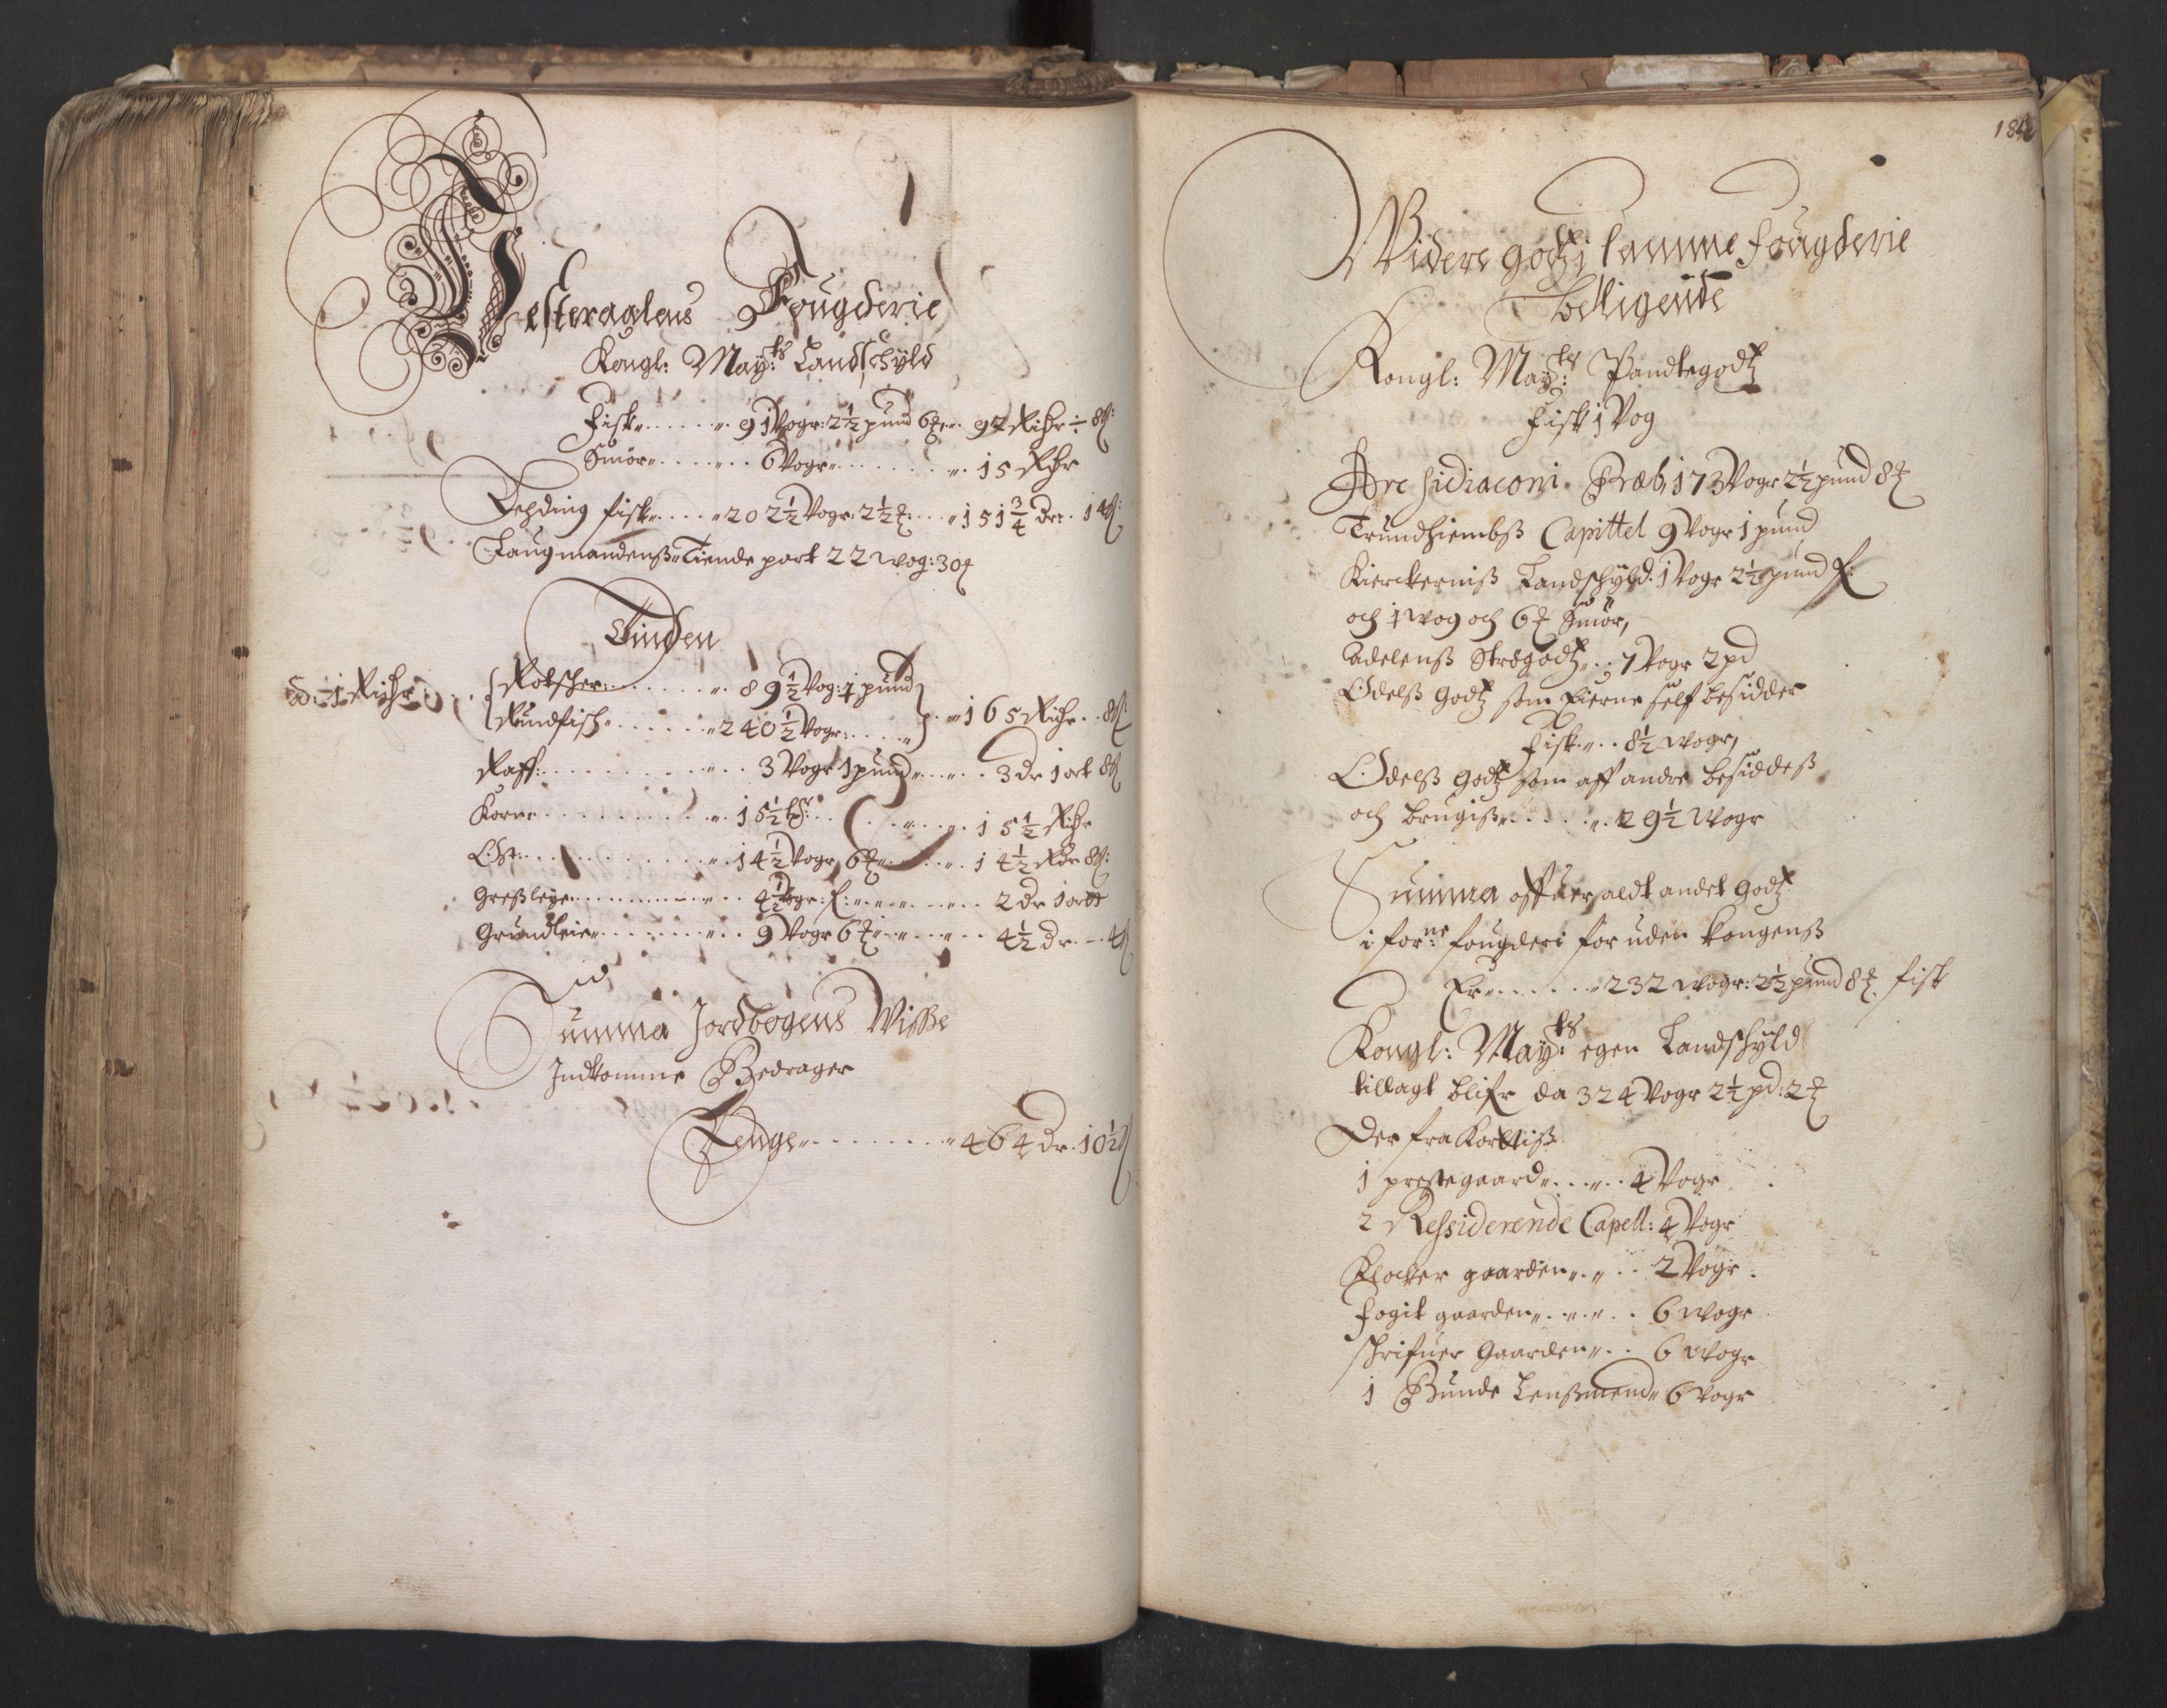 Vesteraalens Fougderie
Kongl: May:ts Landschyld
Fisk 91 Vogr: 2½ pund 6 92 Richr ÷ 8
Smør 6 Vogr 15 Richr
Leding fisk 202½ Vogr: 2½ 151¾ dr: 14
Laugmandenß Tiende part 22 wog: 30
Tinden
Rotscher 89½ Vog: 1 pund
Rundfisch 240½ Vogr: 165 Richr. 8
Raff: 3 Vogr 1 pund 3 dr 1 ort 8
Korn 15½ 15½ Richr
Ost: 14½ Vogr 6 14½ Rdr 8
Greßleye 4½ Vogr: f: 2 dr 1 ort
Grundleie 9 Vogr 6 4½ dr 4
Summa Jordbogens Wisse
Indkomme Bedrager
Penge 464 dr. 10½
Widere godtz i samme fougderie
beliigende
Kongl: May:ts Pandtegodtz
Fisk 1 Vog
Archidiaconi Præb, 173 Vogr 2½ pund 8
Trundhiembß Capittel 9 Vogr 1 pund
Kierckerniß Landschyld: 1 Vogr 2½ pund f:
och 1 wog och 6 Smør,
Adelenß Strøgodtz 7 Vogr 2 pd
Odelß godtz som Eierne self besidder
Fisk 8½ wogr,
Odelß godtz som aff andre besiddeß
och brugiß 29½ Wogr
Summa offuer aldt andet godtz
i for:ne fougderi for uden kongenß
Er 232 wogr: 2½ pund 8 fisk
Kongl: May:ts egen Landschyld
tillagt blifr da 324 Vogr 2½ pd: 2
Der fra Kortiß
1 prestegaard 4 Vogr
2 Ressiderende Capell: 4 Vogr
Klocker gaarden 2 Vogr
Fogit gaarden 6 wogr
schrifuer Gaarden 6 wogr
1 Bunde Lenßmend 6 Vogr